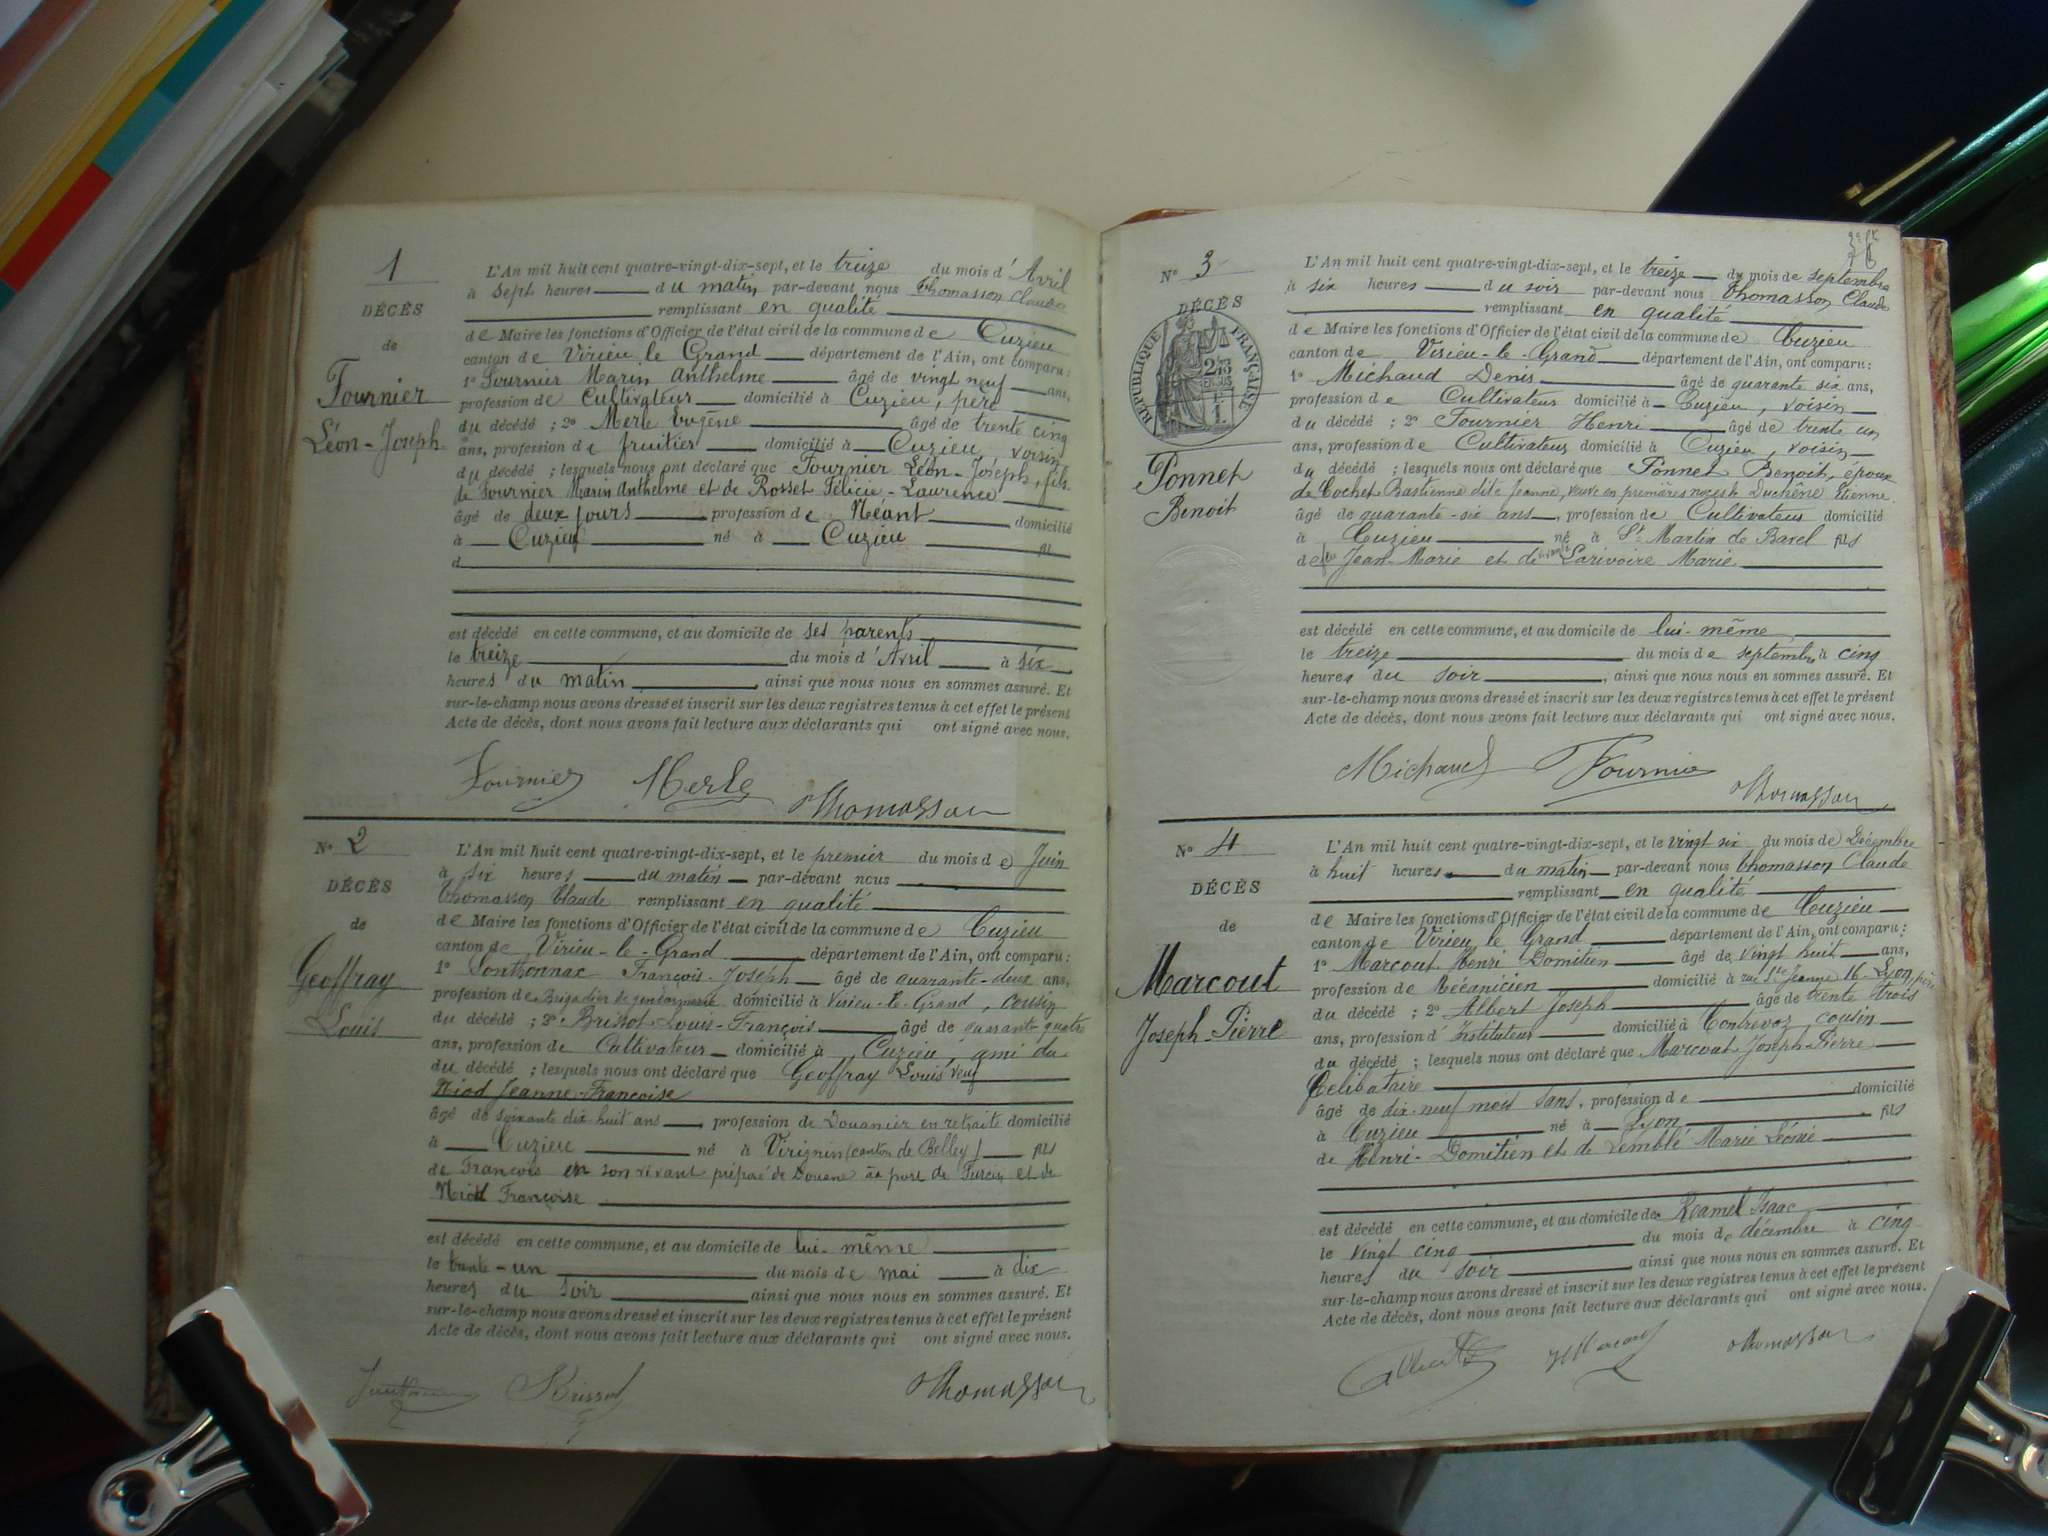 1
DÉCÈS
de
Fournier
Léon-Joseph
L'An mil huit cent quatre-vingt-dix-sept, et le treize du mois d'Avril
à sept heures du matin par-devant nous Thomasson Claude
remplissant en qualité
de Maire les fonctions d'Officier de l'état civil de la commune de Cuzieu
canton de Virieu le Grand département de l'Ain, ont comparu :
1° Fournier Marin Anthelme âgé de vingt neuf ans,
profession de Cultivateur domicilié à Cuzieu, père
du décédé ; 2° Merle Eugène âgé de trente cinq
ans, profession de fruitier domicilié à Cuzieu, voisin
du décédé ; lesquels nous ont déclaré que Fournier Léon-Joseph, fils
de Fournier Marin Anthelme et de Rosset Félicie-Laurence
âgé de deux jours profession de Néant domicilié
à Cuzieu né à Cuzieu fil
d
est décédé en cette commune, et au domicile de ses parents
le treize du mois d'Avril à six
heures du matin, ainsi que nous nous en sommes assuré. Et
sur-le-champ nous avons dressé et inscrit sur les deux registres tenus à cet effet le présent
Acte de décès, dont nous avons fait lecture aux déclarants qui ont signé avec nous.
Fournier Merle Thomasson
N° 2
DÉCÈS
de
Geoffray
Louis
L'An mil huit cent quatre-vingt-dix-sept, et le premier du mois de Juin
à six heures du matin par-devant nous
Thomasson Claude remplissant en qualité
de Maire les fonctions d'Officier de l'état civil de la commune de Cuzieu
canton de Virieu-le-Grand département de l'Ain, ont comparu :
1° François-Joseph âgé de quarante-deux ans,
profession de Brigadier de gendarmerie domicilié à Virieu-le-Grand, cousin
du décédé ; 2° Brissot Louis-François âgé de quarante quatre
ans, profession de Cultivateur domicilié à Cuzieu, ami du
du décédé ; lesquels nous ont déclaré que Geoffray Louis veuf
Niod Jeanne-Françoise
âgé de soixante dix huit ans, profession de Douanier en retraite domicilié
à Cuzieu né à Virignin (canton de Belley) fils
de François en son vivant préposé de Douane au port de et de
Niod Françoise
est décédé en cette commune, et au domicile de lui-même
le trente-un du mois de mai à dix
heures du soir ainsi que nous nous en sommes assuré. Et
sur-le-champ nous avons dressé et inscrit sur les deux registres tenus à cet effet le présent
Acte de décès, dont nous avons fait lecture aux déclarants qui ont signé avec nous.
Brissot Thomasson
N° 3
DÉCÈS
RÉPUBLIQUE FRANÇAISE
Ponnet
Benoit
L'An mil huit cent quatre-vingt-dix-sept, et le treize du mois de septembre
à six heures du soir par-devant nous Thomasson Claude
remplissant en qualité
de Maire les fonctions d'Officier de l'état civil de la commune de Cuzieu
canton de Virieu-le-Grand département de l'Ain, ont comparu :
1° Michaud Denis âgé de quarante six ans,
profession de Cultivateur domicilié à Cuzieu, voisin
du décédé ; 2° Fournier Henri âgé de trente un
ans, profession de Cultivateur domicilié à Cuzieu, voisin
du décédé ; lesquels nous ont déclaré que Ponnet Benoit, époux
de Cochet Bastienne dite Jeanne, veuve en premières noces de Duchêne Etienne
âgé de quarante-six ans, profession de Cultivateur domicilié
à Cuzieu né à St Martin de Bavel fils
de feu Jean-Marie et de Larivoire Marie
est décédé en cette commune, et au domicile de lui-même
le treize du mois de septembre à cinq
heures du soir, ainsi que nous nous en sommes assuré. Et
sur-le-champ nous avons dressé et inscrit sur les deux registres tenus à cet effet le présent
Acte de décès, dont nous avons fait lecture aux déclarants qui ont signé avec nous.
Michaud Fournier Thomasson
N° 4
DÉCÈS
de
Marcout
Joseph-Pierre
L'An mil huit cent quatre-vingt-dix-sept, et le vingt six du mois de Décembre
à huit heures du matin par-devant nous Thomasson Claude
remplissant en qualité
de Maire les fonctions d'Officier de l'état civil de la commune de Cuzieu
canton de Virieu le Grand département de l'Ain, ont comparu :
1° Marcout Henri Domitien âgé de vingt huit ans,
profession de Mécanicien domicilié à rue Ste Jeanne 16 Lyon, père
du décédé ; 2° Albert Joseph âgé de trente trois
ans, profession d'Instituteur domicilié à Contrevoz, cousin
du décédé ; lesquels nous ont déclaré que Marcout Joseph-Pierre
Célibataire
âgé de dix-neuf mois sans, profession de domicilié
à Cuzieu né à Lyon fils
de Henri-Domitien et de Marie Léonie
est décédé en cette commune, et au domicile de Ramel Isaac
le vingt cinq du mois de décembre à cinq
heures du soir ainsi que nous nous en sommes assuré. Et
sur-le-champ nous avons dressé et inscrit sur les deux registres tenus à cet effet le présent
Acte de décès, dont nous avons fait lecture aux déclarants qui ont signé avec nous.
Albert Thomasson